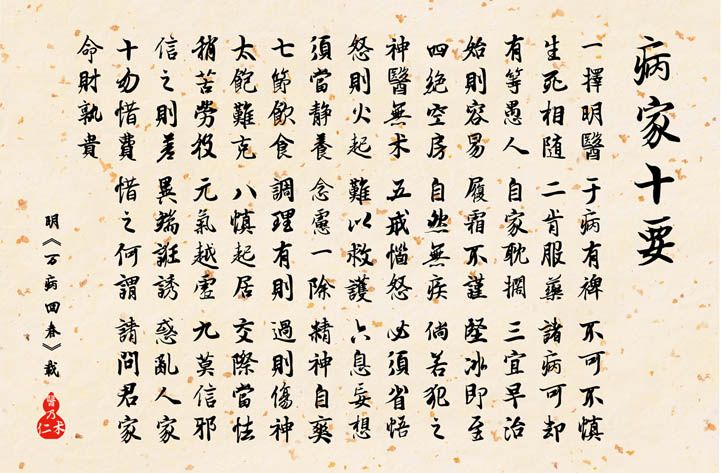 病家十要
一擇明醫 于病有裨 不可不慎
生死相随 二肯服藥 諸病可却
有等愚人 自家耽擱 三宜早治
始則容易 履霜不謹 堅冰即至
四绝空房 自然無疾 倘若犯之
神醫無术 五戒惱怒 必須省悟
怒則火起 難以救護 六息妄想
須當静養 念慮一除 精神自爽
七節飲食 調理有則 過則傷神
太飽難克 八慎起居 交際當怯
稍苦勞役 元氣越虛 九莫信邪
信之則差 異端誑誘 惑亂人家
十勿惜費 惜之何謂 請問君家
命財孰貴
明《万病回春》載
醫乃仁术